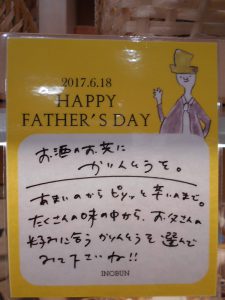 2017.6.18
HAPPY
FATHER'S DAY
お酒のお供に
かりんとうを。
あまいのからピリッと辛いのまで。
たくさんの味の中から、お父さんの
好みに合うかりんとうを選んで
みて下さいね!!
INOBUN